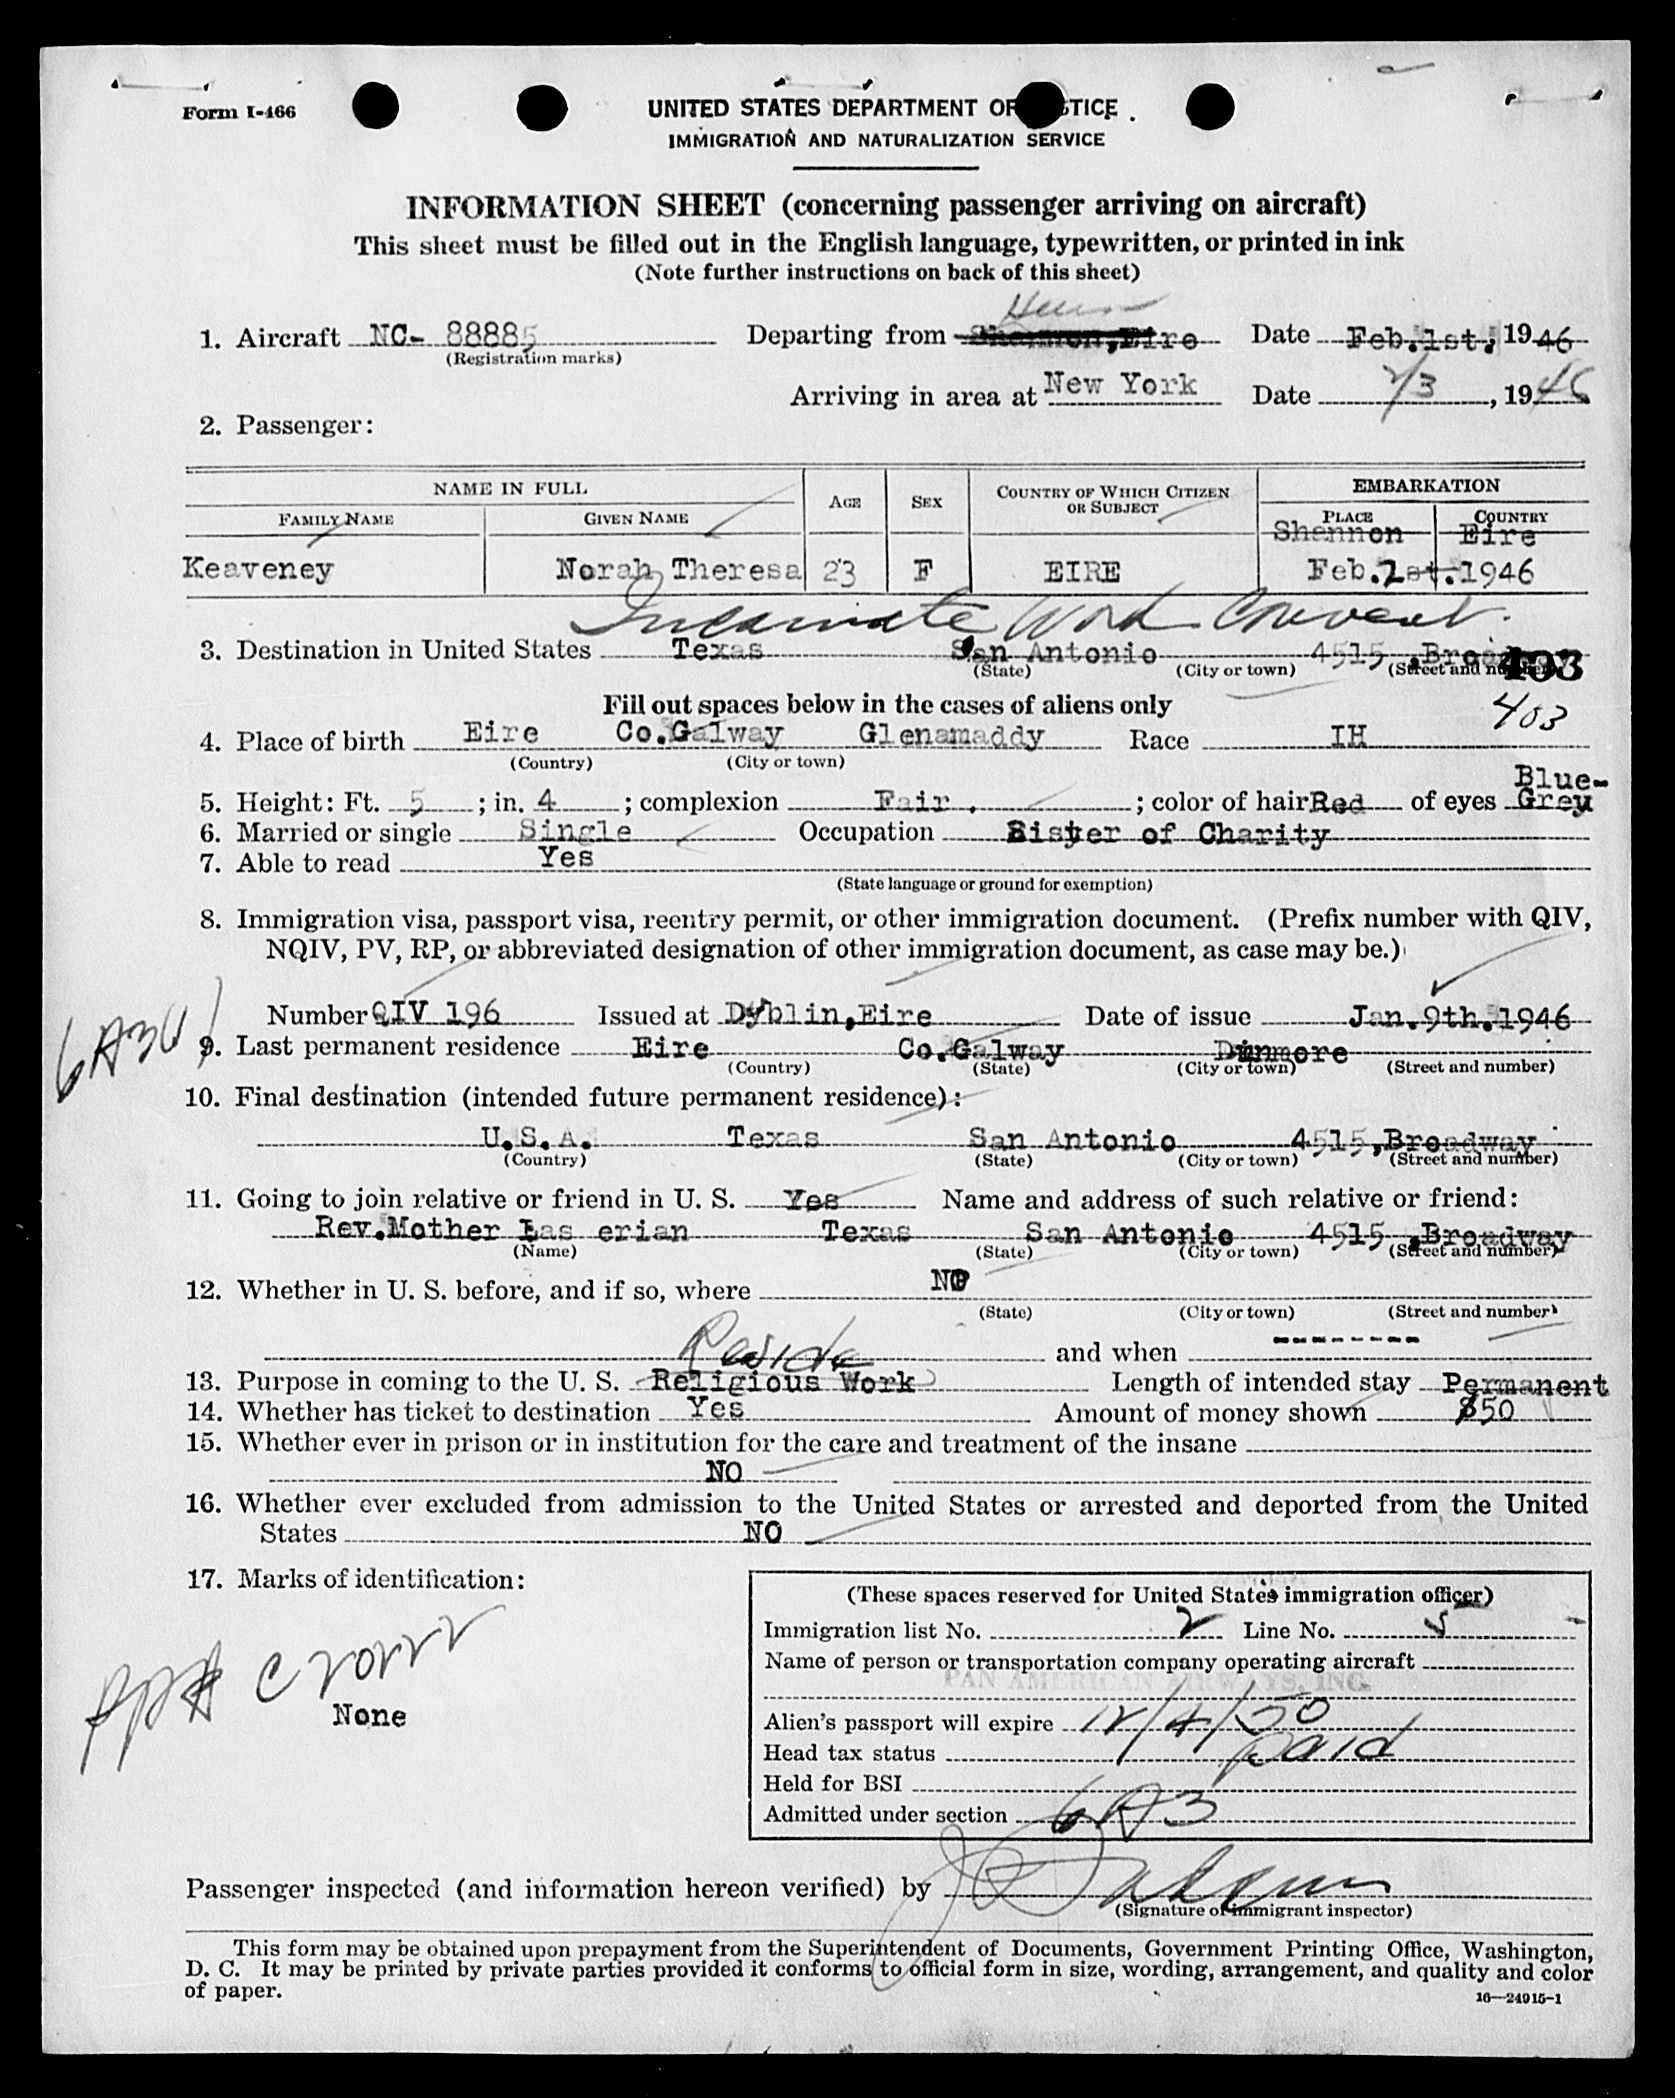 Form I-466
UNITED STATES DEPARTMENT OF JUSTICE
IMMIGRATION AND NATURALIZATION SERVICE
INFORMATION SHEET (concerning passenger arriving on aircraft)
This sheet must be filled out in the English language, typewritten, or printed in ink
(Note further instructions on back of this sheet)
1. Aircraft NC- 88885 Departing from Shannon,Eire Date Feb.1st. , 1946
(Registration marks)
Arriving in area at New York Date 2/3 , 1946
2. Passenger:
NAME IN FULL AGE SEX COUNTRY OF WHICH CITIZEN OR SUBJECT EMBARKATION
FAMILY NAME GIVEN NAME PLACE COUNTRY
Shannon Eire
Keaveney Norah Theresa 23 F EIRE Feb.1st.1946
Incarnate Word Convent.
3. Destination in United States Texas San Antonio 4515 ,Broadway
(State) (City or town) (Street and number) 403
Fill out spaces below in the cases of aliens only
403
4. Place of birth Eire Co.Galway Glenamaddy Race IH
(Country) (City or town)
Blue-
5. Height: Ft. 5 ; in. 4 ; complexion Fair . ; color of hair Red of eyes Grey
6. Married or single Single Occupation Sister of Charity
7. Able to read Yes
(State language or ground for exemption)
8. Immigration visa, passport visa, reentry permit, or other immigration document. (Prefix number with QIV,
NQIV, PV, RP, or abbreviated designation of other immigration document, as case may be.)
Number QIV 196 Issued at Dublin,Eire Date of issue Jan.9th.1946
6A3
9. Last permanent residence Eire Co.Galway Dunmore
(Country) (State) (City or town) (Street and number)
10. Final destination (intended future permanent residence):
U.S.A. Texas San Antonio 4515,Broadway
(Country) (State) (City or town) (Street and number)
11. Going to join relative or friend in U. S. Yes Name and address of such relative or friend:
Rev.Mother Las erian Texas San Antonio 4515 ,Broadway
(Name) (State) (City or town) (Street and number)
12. Whether in U. S. before, and if so, where NO
(State) (City or town) (Street and number)
and when ---------
Reside
13. Purpose in coming to the U. S. Religious Work Length of intended stay Permanent
14. Whether has ticket to destination Yes Amount of money shown $50
15. Whether ever in prison or in institution for the care and treatment of the insane
NO
16. Whether ever excluded from admission to the United States or arrested and deported from the United
States NO
17. Marks of identification:
None
(These spaces reserved for United States immigration officer)
Immigration list No. 2 Line No. 5
Name of person or transportation company operating aircraft
PAN AMERICAN AIRWAYS, INC.
Alien's passport will expire 12/4/50
Head tax status paid
Held for BSI
Admitted under section 6A3
Passenger inspected (and information hereon verified) by
(Signature of immigrant inspector)
This form may be obtained upon prepayment from the Superintendent of Documents, Government Printing Office, Washington,
D. C. It may be printed by private parties provided it conforms to official form in size, wording, arrangement, and quality and color
of paper.
16—24915-1